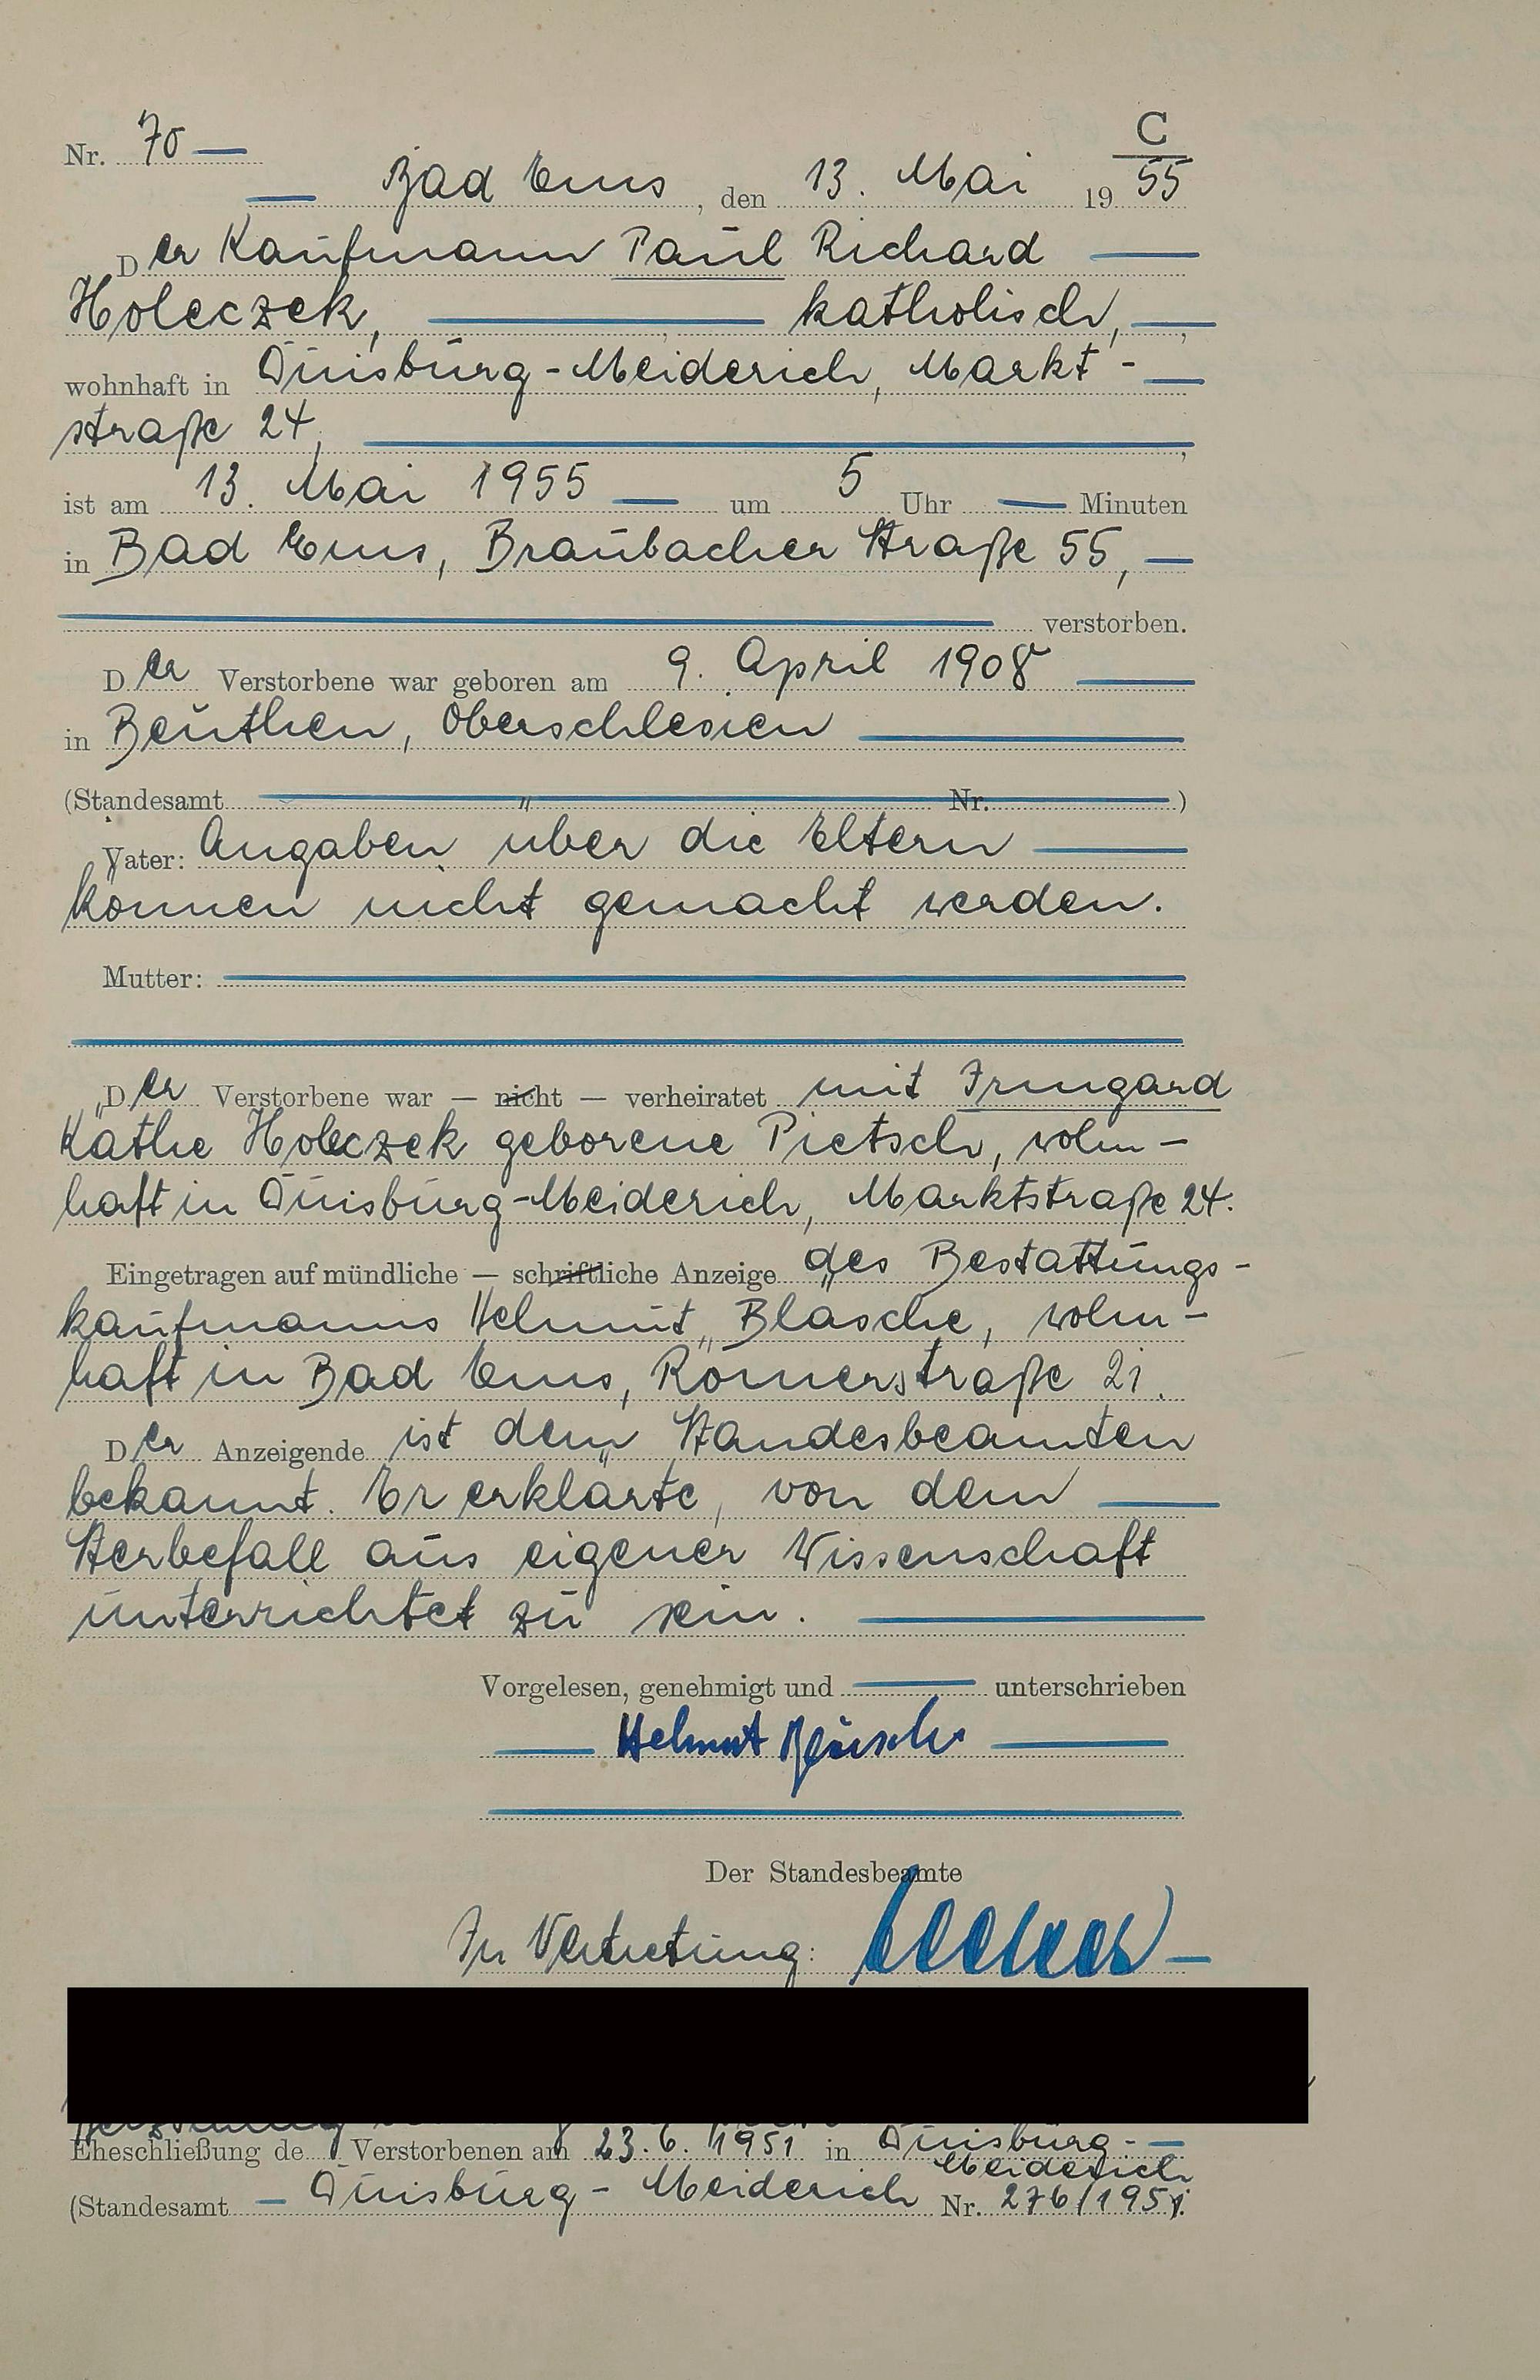 C
Nr. 70 —
— Bad Ems, den 13. Mai 1955
Der Kaufmann Paul Richard —
Holeczek, — katholisch, —,
wohnhaft in Duisburg-Meiderich, Markt- —
straße 24, —,
ist am 13. Mai 1955 — um 5 Uhr — Minuten
in Bad Ems, Braubacher Straße 55, —
— verstorben.
Der Verstorbene war geboren am 9. April 1908 —
in Beuthen, Oberschlesien —
(Standesamt — Nr. —)
Vater: Angaben über die Eltern —
können nicht gemacht werden.
Mutter: —
Der Verstorbene war — nicht — verheiratet mit Irmgard
Käthe Holeczek geborene Pietsch, wohn-
haft in Duisburg-Meiderich, Marktstraße 24.
Eingetragen auf mündliche — schriftliche Anzeige des Bestattungs-
kaufmanns Helmut Bläsche, wohn-
haft in Bad Ems, Römerstraße 21.
Der Anzeigende ist dem Standesbeamten
bekannt. Er erklärte, von dem —
Sterbefall aus eigener Wissenschaft
unterrichtet zu sein. —
Vorgelesen, genehmigt und — unterschrieben
— Helmut Bläsche —
Der Standesbeamte
In Vertretung:
Eheschließung de Verstorbenen am 23.6.1951 in Duisburg- —
Meiderich
(Standesamt — Duisburg-Meiderich Nr. 276/1951.